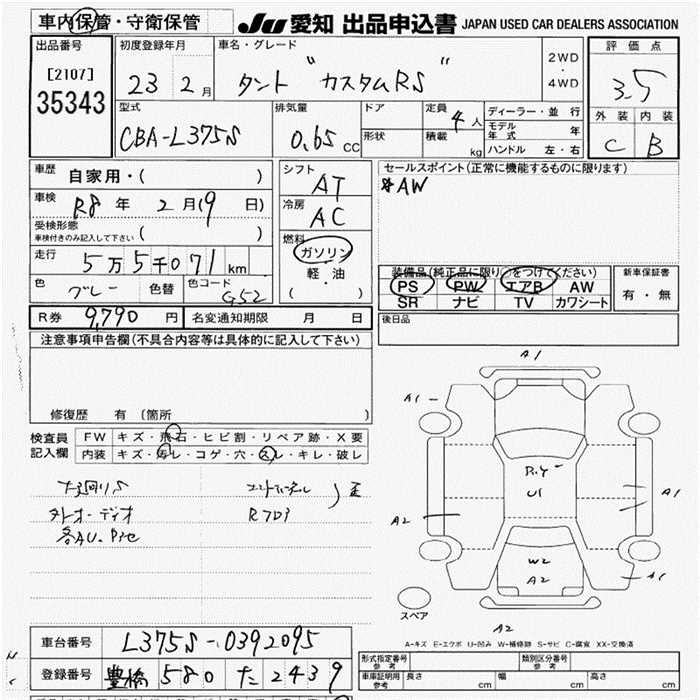 車内保管・守衛保管
JU 愛知 出品申込書 JAPAN USED CAR DEALERS ASSOCIATION
出品番号
[2107]
35343
初度登録年月
23 2月
車名・グレード
タント "カスタムRS"
2WD
・
4WD
評価点
3.5
外装 内装
C B
型式
CBA-L375S
排気量
0.65 CC
ドア
形状
定員 4人
積載 kg
ディーラー・並行
モデル年式 年
ハンドル 左・右
車歴 自家用・( )
車検 R8年 2月(9日)
受検形態
車検付きのみ記入して下さい ( )
走行 5万5千071km
色 グレー 色替 色コード G52
シフト
AT
冷房
AC
燃料
ガソリン
・
軽油
・
( )
セールスポイント(正常に機能するものに限ります)
AW
装備品(純正品に限り○をつけてください)
PS PW エアB AW
SR ナビ TV カワシート
新車保証書
有・無
R券 9,790円 名変通知期限 月 日
後日品
注意事項申告欄(不具合内容等は具体的に記入して下さい)
修復歴 有 (箇所 )
検査員
記入欄
FW キズ・飛石・ヒビ割・リペア跡・X要
内装 キズ・汚レ・コゲ・穴・スレ・キレ・破レ
外オーディオ
A1
A1
A2
U1
A1
W2
A2
A2
スペア
A-キズ E-エクボ U-凹み W-補修跡 S-サビ C-腐食 XX-交換済
車台番号 L375S-0392095
登録番号 豊橋 580 た 2439
形式指定番号
参考
類別区分番号
参考
車庫証明用
参考
長さ cm 幅 cm 高さ cm